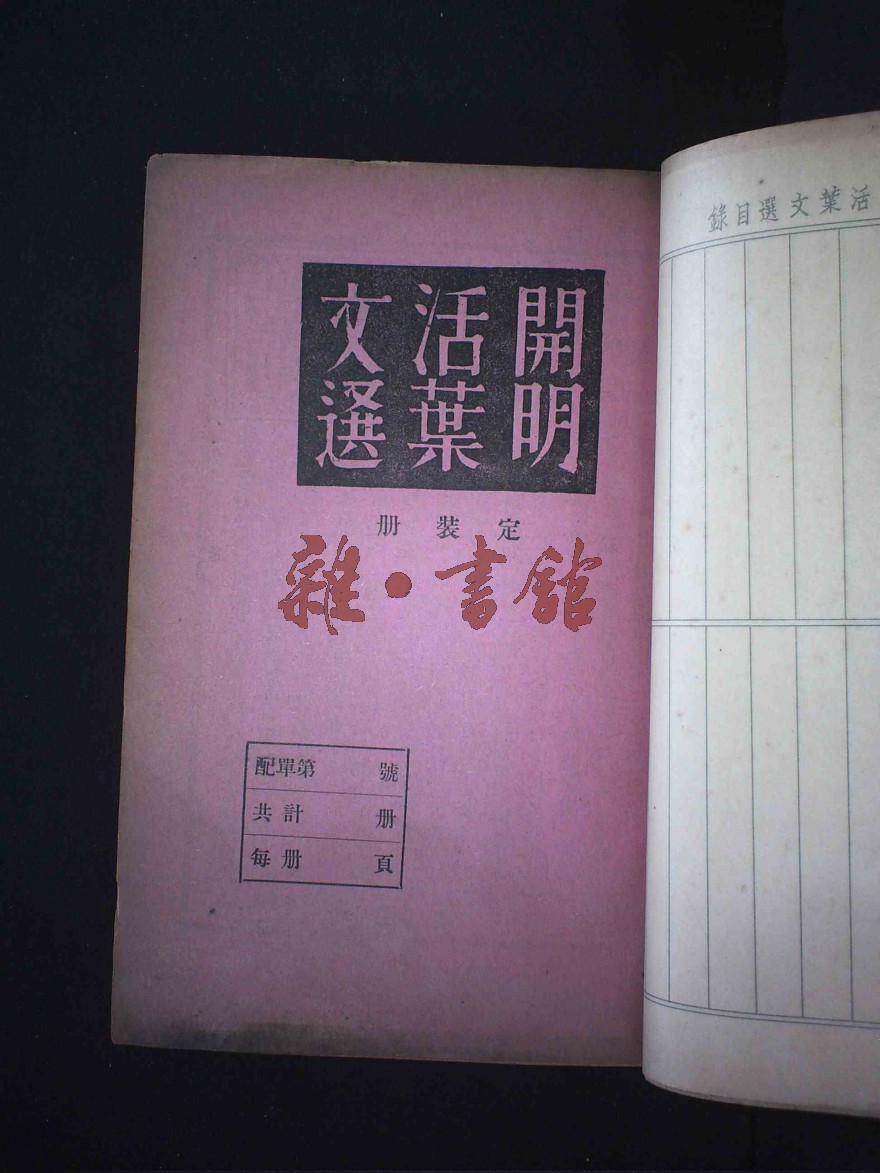 開明
活葉
文選
定裝册
雜·書館
配單第 號
共計 册
每册 頁
活葉文選目錄